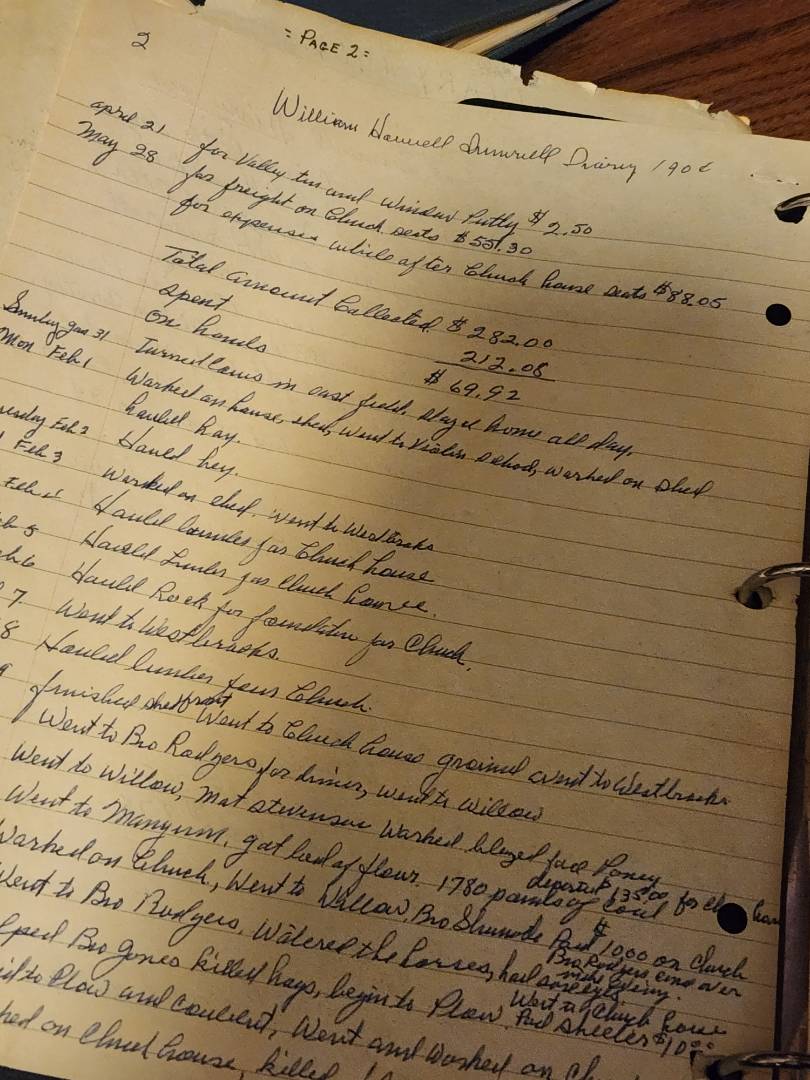 2
= PAGE 2 =
William Diary 190
april 21 for Valley tin and Window Putty $ 2.50
May 28 for freight on Church seats $ 30
for expenses while after Church house seats $88.05
Total amount Collected $ 282.00
spent 212.08
on hands $ 69.92
Sunday Jan 31 Turned Cows in east field, stayed home all day.
Mon Feb 1 Worked on house, shed, Went to Violin School, worked on shed
hauled hay.
Feb 2 Hauled hey.
Feb 3 Worked on shed. went to Westbrooks
Feb Hauled for Church house
5 Hauled for Church house.
6 Hauld Rock for for Church.
7 Went to Westbrooks.
8 Hauled lumber Church.
9 finished shed Went to Church house and went to Westbrooks
Went to Bro Rodgers for dinner, went to Willow
Went to Willow, Mat Stevenson Worked
Went to Mangum, got load of flour. 1780 of coal $135.00 for
Worked on Church, Went to Willow, Bro Paid $ 10.00 on Church
Went to Bro Rodgers, Watered the horses, had sore eyes. Bro Rodgers over
Bro Jones killed hogs, begin to Plow, Went to Church house
to Plow and , Went and Worked on Paid $10.00
on Church house, killed